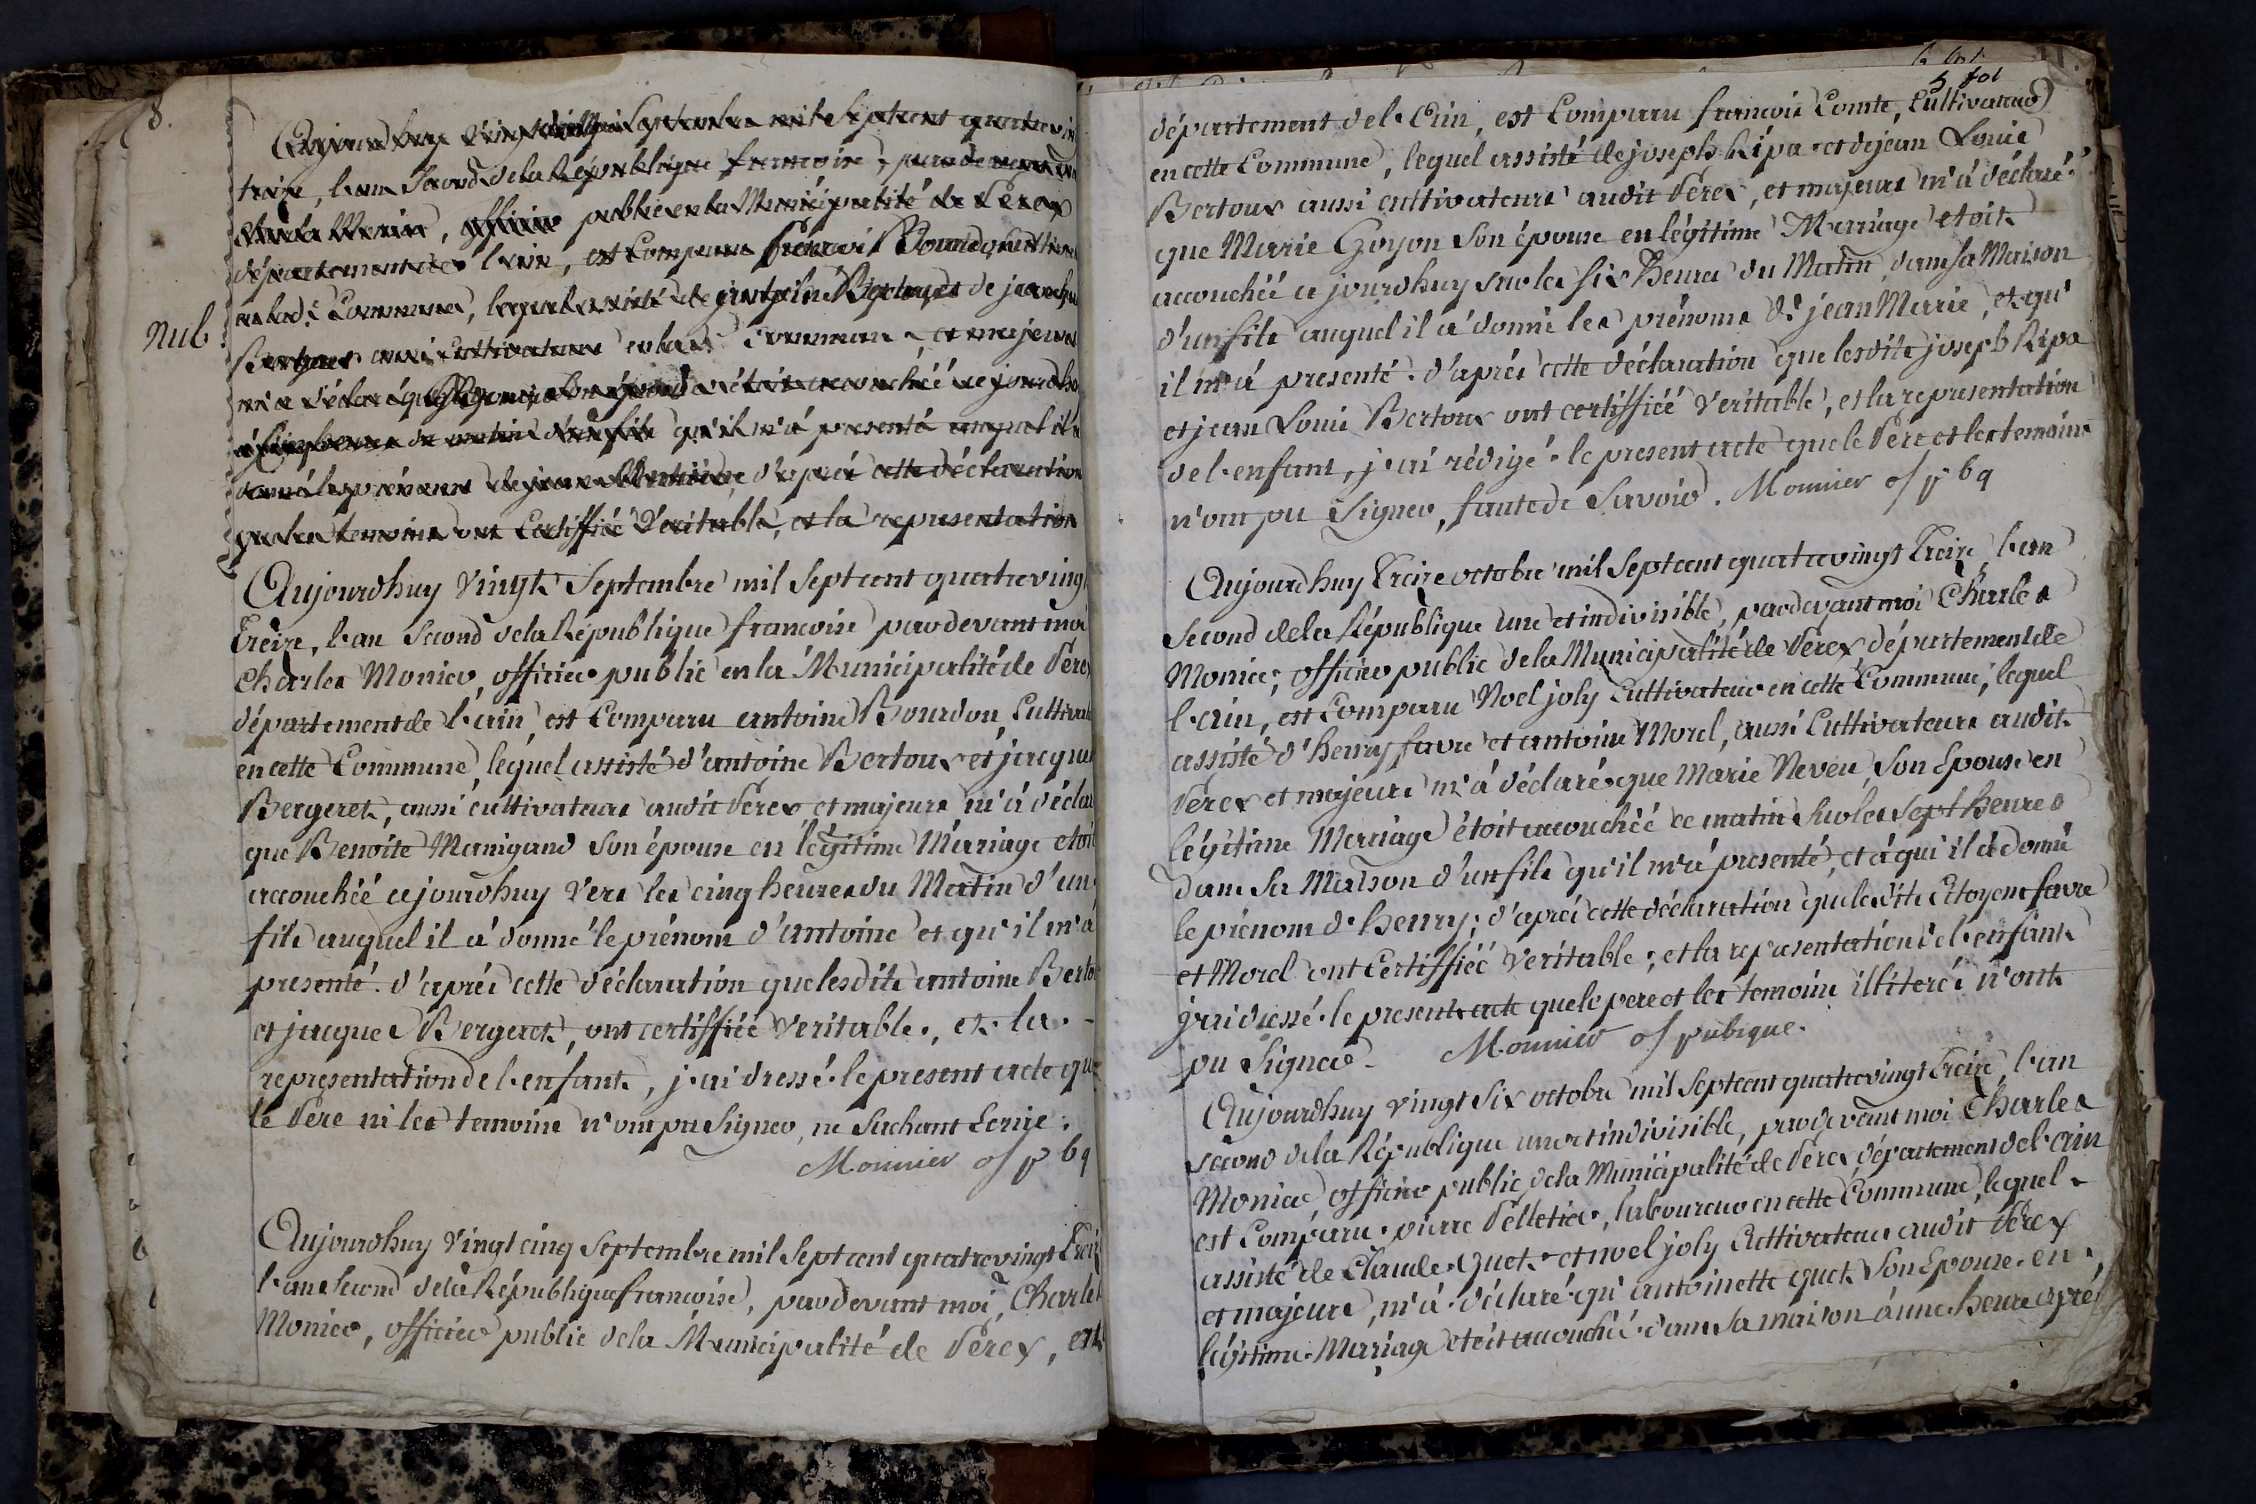 8.
Aujourdhuy Vingt Septembre mil Septcent quatrevin
treize, l'an Second dela République francoise, pardevant
Monier, officier public en la Municipalité de Perex
département de l'ain, est Comparu Bourdon, Cultiva
Commune, lequel assisté de Bertoux et de jacque
nul
Bergeret aussi Cultivateurs Commune et majeurs
m'a déclaré que son épouse étoit accouchéé ce jourdhuy
à Cinq heures du matin d'un fils qu'il m'á presenté auquel il a
donné le prénom d'aprés cette déclaration
que les temoins ont Certiffiéé Veritable, et la representation
Aujourdhuy vingt Septembre mil Septcent quatreving
Treize, l'an Second dela République francoise pardevant moi
Charles Monier, officier public en la Municipalité de Perex
département de l'ain, est Comparu antoine Bourdon, Cultivat
en cette Commune, lequel assisté d'antoine Bertoux et jacque
Bergeret, aussi cultivateurs audit Perex et majeurs m'á déclar
que Benoite Manigand son épouse en légitime Marriage etoit
accouchéé cejourdhuy vers les cinq heures du Matin d'un
fils auquel il á donné le prénom d'antoine et qu'il m'á
presenté. d'aprés cette déclaration que lesdits antoine Berto
et jacque Bergeret, ont certiffiéé veritable, et la
representation de l'enfant, j'ai dressé le present acte que
le Pere ni les temoins n'ont pu Signer, ne Sachant Ecrire.
Monnier of p bq
Aujourdhuy Vingt cinq Septembre mil Septcent quatrevingt Treiz
l'an Second dela République francoise, pardevant moi, Charles
Monier, officier public dela Municipalité de Perex, est
11.
5 fol
département del'Ain, est Comparu francois Comte, Cultivateur
en cette Commune, lequel assisté de joseph Ripa et de jean Louis
Bertoux aussi cultivateurs audit Perex, et majeurs m'á déclaré
que Marie Goyon Son épouse en légitime Marriage etoit
accouchéé ce jourdhuy sur les six heures du Matin dans sa Maison
d'un fils auquel il á donné les prénoms de jean Marie, et qu'
il m'á presenté. d'aprés cette déclaration que lesdits joseph Ripa
et jean Louis Bertoux ont certiffiéé Veritable, et la representation
de l'enfant, j'ai rédigé le present acte que le Pere et les temoins
n'ont pu Signer, faute de Savoir. Monnier of p bq
Aujourdhuy Treize octobre mil Septcent quatrevingt Treize, l'an
Second dela République une et indivisible, pardevant moi Charles
Monier, officier public dela Municipalité de Perex département de
l'ain, est Comparu Noel joly Cultivateur en cette Commune, lequel
assisté d'henry favre et antoine Morel, aussi Cultivateurs audit
Perex et majeurs m'á déclaré que Marie Neveu, Son Epouse en
légitime Marriage étoit accouchéé ce matin Sur les Sept heures
dans Sa Maison d'un fils qu'il m'á presenté, et á qui il á donné
le prénom de henry; d'aprés cette déclaration que lesdits Citoyens favre
et Morel ont Certiffiéé veritable; et la representation de l'enfant
j'ai dressé le present acte que le pere et les temoins illiterés n'ont
pu Signer. Monnier of pubique.
Aujourdhuy vingt Six octobre mil Septcent quatrevingt Treize, l'an
second dela République une et indivisible, pardevant moi Charles
Monier, officier public dela Municipalité de Perex département del'ain
est Comparu pierre Pelletier, laboureur en cette Commune, lequel
assisté de Claude Guet et noel joly Cultivateurs audit Perex
et majeurs, m'á déclaré qu'antoinette guet Son Epouse en
légitime Marriage etoit accouchéé dans Sa maison á une heure aprés